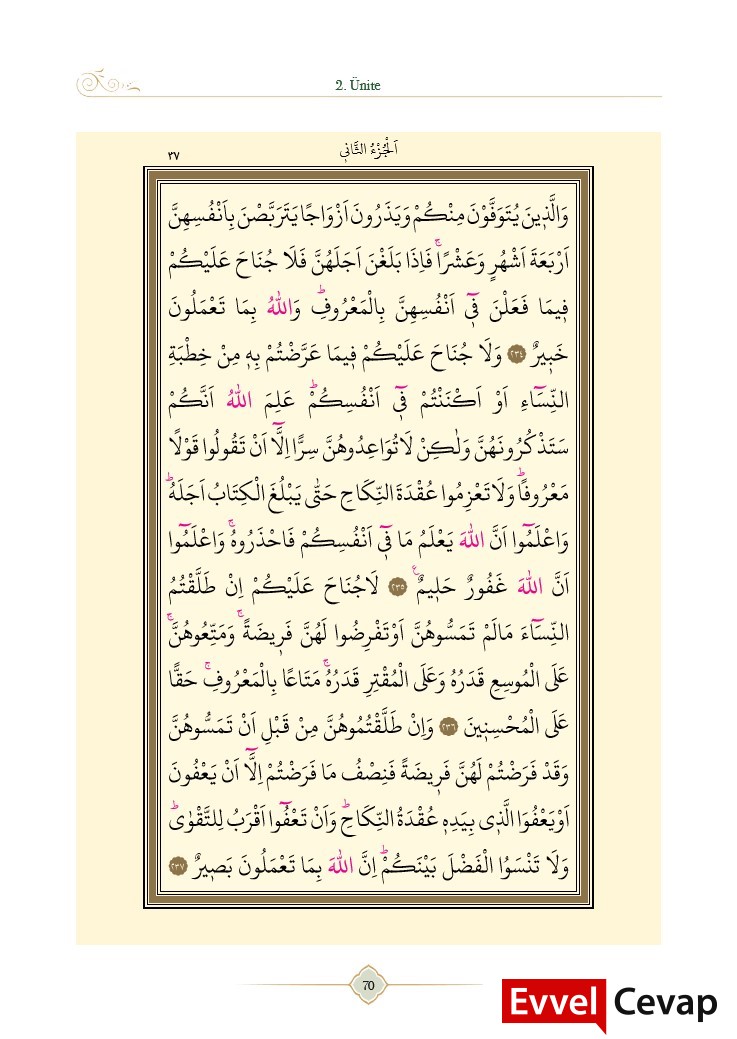 2. Ünite
اَلْجُزْءُ الثَّانٖي
٣٧
وَالَّذٖينَ يُتَوَفَّوْنَ مِنْكُمْ وَيَذَرُونَ اَزْوَاجًا يَتَرَبَّصْنَ بِاَنْفُسِهِنَّ
اَرْبَعَةَ اَشْهُرٍ وَعَشْرًاۚ فَاِذَا بَلَغْنَ اَجَلَهُنَّ فَلَا جُنَاحَ عَلَيْكُمْ
فٖيمَا فَعَلْنَ فٖٓي اَنْفُسِهِنَّ بِالْمَعْرُوفِۜ وَاللّٰهُ بِمَا تَعْمَلُونَ
خَبٖيرٌ ﴿٢٣٤﴾ وَلَا جُنَاحَ عَلَيْكُمْ فٖيمَا عَرَّضْتُمْ بِهٖ مِنْ خِطْبَةِ
النِّسَٓاءِ اَوْ اَكْنَنْتُمْ فٖٓي اَنْفُسِكُمْۜ عَلِمَ اللّٰهُ اَنَّكُمْ
سَتَذْكُرُونَهُنَّ وَلٰكِنْ لَا تُوَاعِدُوهُنَّ سِرًّا اِلَّٓا اَنْ تَقُولُوا قَوْلًا
مَعْرُوفًاۜ وَلَا تَعْزِمُوا عُقْدَةَ النِّكَاحِ حَتّٰى يَبْلُغَ الْكِتَابُ اَجَلَهُۜ
وَاعْلَمُٓوا اَنَّ اللّٰهَ يَعْلَمُ مَا فٖٓي اَنْفُسِكُمْ فَاحْذَرُوهُۚ وَاعْلَمُٓوا
اَنَّ اللّٰهَ غَفُورٌ حَلٖيمٌࣖ ﴿٢٣٥﴾ لَا جُنَاحَ عَلَيْكُمْ اِنْ طَلَّقْتُمُ
النِّسَٓاءَ مَا لَمْ تَمَسُّوهُنَّ اَوْ تَفْرِضُوا لَهُنَّ فَرٖيضَةًۚ وَمَتِّعُوهُنَّۚ
عَلَى الْمُوسِعِ قَدَرُهُ وَعَلَى الْمُقْتِرِ قَدَرُهُۚ مَتَاعًا بِالْمَعْرُوفِۚ حَقًّا
عَلَى الْمُحْسِنٖينَ ﴿٢٣٦﴾ وَاِنْ طَلَّقْتُمُوهُنَّ مِنْ قَبْلِ اَنْ تَمَسُّوهُنَّ
وَقَدْ فَرَضْتُمْ لَهُنَّ فَرٖيضَةً فَنِصْفُ مَا فَرَضْتُمْ اِلَّٓا اَنْ يَعْفُونَ
اَوْ يَعْفُوَا الَّذٖي بِيَدِهٖ عُقْدَةُ النِّكَاحِۜ وَاَنْ تَعْفُٓوا اَقْرَبُ لِلتَّقْوٰىۜ
وَلَا تَنْسَوُا الْفَضْلَ بَيْنَكُمْۜ اِنَّ اللّٰهَ بِمَا تَعْمَلُونَ بَصٖيرٌ ﴿٢٣٧﴾
70
Evvel Cevap